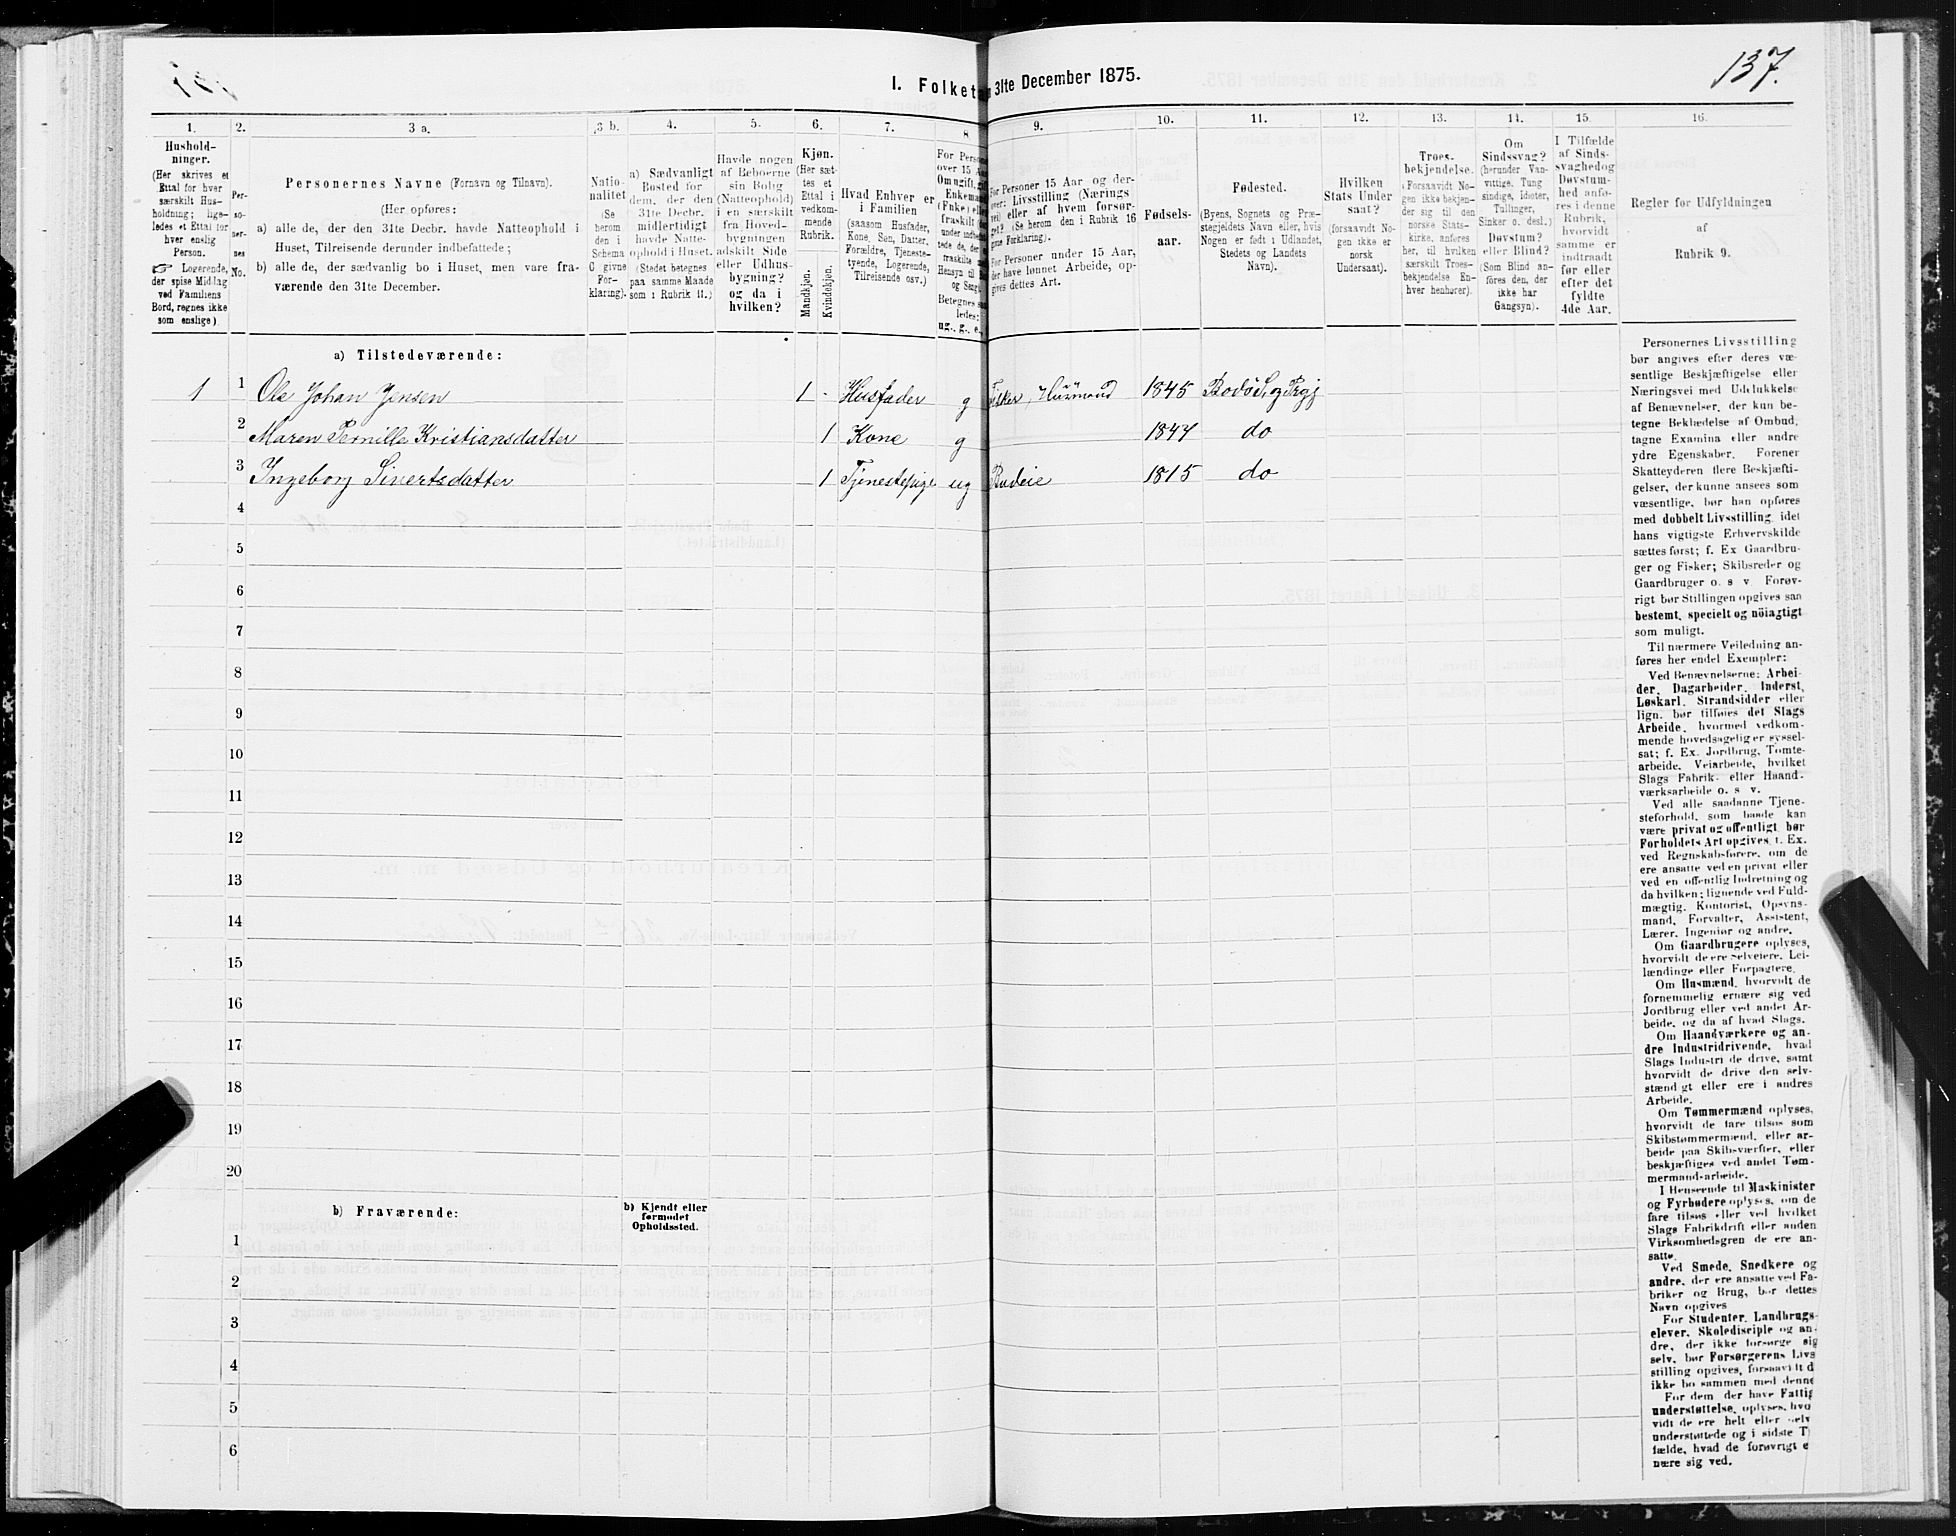 137.
I. Folket
31te December 1875.
1.
2.
3 a.
3 b.
4.
5.
6.
7.
8.
9.
10.
11.
12.
13.
14.
15.
16.
Hushold-
ninger.
(Her skrives et
Ettal for hver
særskilt Hus-
holdning; lige-
ledes et Ettal for
hver enslig
Person.
☞ Logerende,
der spise Middag
ved Familiens
Bord, regnes ikke
som enslige).
Per-
so-
ner-
nes
No.
Personernes Navne (Fornavn og Tilnavn).
(Her opføres:
a) alle de, der den 31te Decbr. havde Natteophold i
Huset, Tilreisende derunder indbefattede;
b) alle de, der sædvanlig bo i Huset, men vare fra-
værende den 31te December.
Natio-
nalitet
(Se
herom
den i
Schema
C givne
For-
klaring).
a) Sædvanligt
Bosted for
dem, der den
31te Decbr.
midlertidigt
havde Natte-
ophold i Huset.
(Stedet betegnes
paa samme Maade
som i Rubrik 11.)
Havde nogen
af Beboerne
sin Bolig
(Natteophold)
i en særskilt
fra Hoved-
bygningen
adskilt Side
eller Udhus-
bygning?
og da i
hvilken?
Kjøn.
(Her sæt-
tes et
Ettal i
vedkom-
mende
Rubrik.
Mandkjøn.
Kvindekjøn.
Hvad Enhver er
i Familien
(saasom Husfader,
Kone, Søn, Datter,
Forældre, Tjeneste-
tyende, Logerende,
Tilreisende osv.)
For Perso
over 15 Aa
Om ugift, gif
Enkeman
(Enke) elle
fraskilt
Betegnes saa
ledes:
ug., g., e.,
For Personer 15 Aar og der-
over: Livsstilling (Nærings
vei) eller af hvem forsør-
get? (Se herom den i Rubrik 16
givne Forklaring).
For Personer under 15 Aar,
der have lønnet Arbeide, op-
gives dettes Art.
Fødsels-
aar.
Fødested.
(Byens, Sognets og Præ-
stegjeldets Navn eller, hvis
Nogen er født i Udlandet,
Stedets og Landets
Navn).
Hvilken
Stats Under
saat?
(forsaavidt No-
gen ikke er
norsk
Undersaat).
Troes-
bekjendelse.
(Forsaavidt No-
gen ikke bekjen-
der sig til den
norske Stats-
kirke, anføres
her, til hvilken
særskilt Troes-
bekjendelse En-
hver henhører).
Om
Sindssvag?
(herunder Van-
vittige, Tung
sindige, Idioter,
Tullinger,
Sinker o. desl.)
Døvstum?
eller Blind?
(Som Blind an-
føres den, der
ikke har
Gangsyn).
I Tilfælde
af Sinds-
svaghedog
Døvstum-
hed anfø-
res i denne
Rubrik,
hvorvidt
samme er
indtraadt
før eller
efter det
fyldte
4de Aar.
Regler for Udfyldningen
af
Rubrik 9.
a) Tilstedeværende:
1 1 Ole Johan Jensen 1 Husfader g Fisker, Husmand 1845 Bodø S. og Prgj
2 Maren Pernille Kristiansdatter 1 Kone g 1847 do
3 Ingeborg Sivertsdatter 1 Tjenestepige ug Budeie 1815 do
4
5
6
7
8
9
10
11
12
13
14
15
16
17
18
19
20
b) Fraværende:
b) Kjendt eller
formodet
Opholdssted.
1
2
3
4
5
6
Personernes Livsstilling
bør angives efter deres væ-
sentlige Beskjæftigelse eller
Næringsvei med Udelukkelse
af Benævnelser, der kun be-
tegne Beklædelse af Ombud,
tagne Examina eller andre
ydre Egenskaber. Forener
Skatteyderen flere Beskjæfti-
gelser, der kunne ansees som
væsentlige, bør han opføres
med dobbelt Livsstilling, idet
hans vigtigste Erhvervskilde
sættes først; f. Ex Gaardbru-
ger og Fisker; Skibsreder og
Gaardbruger o. s v. Forøv-
rigt bør Stillingen opgives saa
bestemt, specielt og nöiagtigt
som muligt.
Til nærmere Veiledning an-
føres her endel Exempler:
Ved Benævnelserne: Arbei-
der, Dagarbeider, Inderst,
Løskarl, Strandsidder eller
lign. bør tilføies det Slags
Arbeide, hvormed vedkom-
mende hovedsagelig er syssel-
sat; f. Ex. Jordbrug, Tomte-
arbeide, Veiarbeide, hvilket
Slags Fabrik- eller Haand-
værksarbeide o. s v.
Ved alle saadanne Tjene-
steforhold, som baade kan
være privat og offentligt, bør
Forholdets Art opgives, f. Ex.
ved Regnskabsførere, om de
ere ansatte ved en privat eller
ved en offentlig Indretning og
da hvilken; lignende ved Fuld-
mægtig, Kontorist, Opsyns-
mand, Forvalter, Assistent,
Lærer, Ingeniør og andre.
Om Gaardbrugere oplyses,
hvorvidt de ere Selveiere, Lei-
lændinge eller Forpagtere.
Om Husmænd, hvorvidt de
fornemmelig ernære sig ved
Jordbrug eller ved andet Ar-
beide, og da af hvad Slags.
Om Haandværkere og an-
dre Industridrivende, hvad
Slags Industri de drive, samt
hvorvidt de drive den selv-
stændigt eller ere i andres
Arbeide.
Om Tømmermænd oplyses,
hvorvidt de fare tilsøs som
Skibstømmermænd, eller ar-
beide paa Skibsværfter, eller
beskjæftiges ved andet Tøm-
mermandsarbeide.
I Henseende til Maskinister
og Fyrbødere oplyses, om de
fare tilsøs eller ved hvilket
Slags Fabrikdrift eller anden
Virksomhedsgren de ere an-
satte.
Ved Smede, Snedkere og
andre, der ere ansatte ved Fa-
briker og Brug, bør dettes
Navn opgives
For Studenter, Landbrugs-
elever, Skoledisciple og an-
dre, der ikke forsørge sig
selv, bør Forsørgerens Livs
stilling opgives, forsaavidt d
ikke bo sammen med denne
For dem der have Fattig
understøttelse, oplyses, hvo
vidt de ere helt eller
understøttede og i sidste T
fælde, hvad de forøvrigt e
nære sig ved.